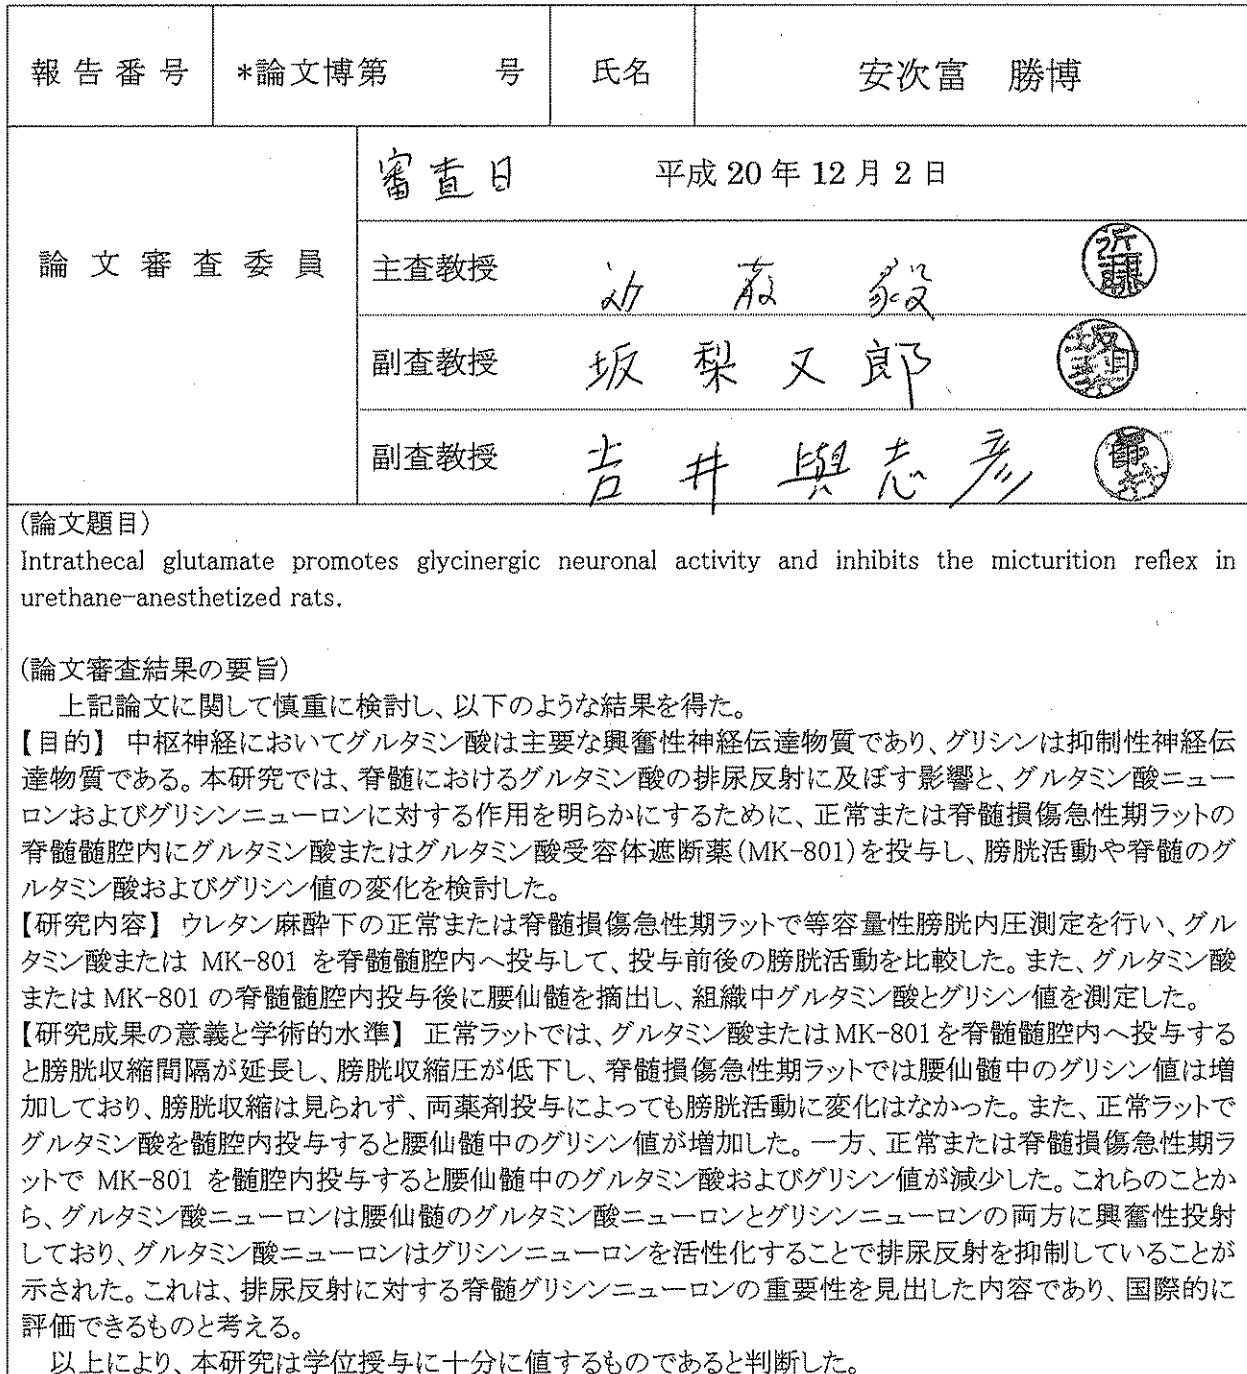 報告番号 *論文博第 号 氏名 安次富 勝博
審査日 平成 20 年 12 月 2 日
論文審査委員
主査教授 近藤 毅 近藤
副査教授 坂梨又郎
副査教授 吉井與志彦
(論文題目)
Intrathecal glutamate promotes glycinergic neuronal activity and inhibits the micturition reflex in
urethane-anesthetized rats.
(論文審査結果の要旨)
上記論文に関して慎重に検討し、以下のような結果を得た。
【目的】 中枢神経においてグルタミン酸は主要な興奮性神経伝達物質であり、グリシンは抑制性神経伝
達物質である。本研究では、脊髄におけるグルタミン酸の排尿反射に及ぼす影響と、グルタミン酸ニュー
ロンおよびグリシンニューロンに対する作用を明らかにするために、正常または脊髄損傷急性期ラットの
脊髄髄腔内にグルタミン酸またはグルタミン酸受容体遮断薬(MK-801)を投与し、膀胱活動や脊髄のグ
ルタミン酸およびグリシン値の変化を検討した。
【研究内容】 ウレタン麻酔下の正常または脊髄損傷急性期ラットで等容量性膀胱内圧測定を行い、グル
タミン酸または MK-801 を脊髄髄腔内へ投与して、投与前後の膀胱活動を比較した。また、グルタミン酸
または MK-801 の脊髄髄腔内投与後に腰仙髄を摘出し、組織中グルタミン酸とグリシン値を測定した。
【研究成果の意義と学術的水準】 正常ラットでは、グルタミン酸またはMK-801を脊髄髄腔内へ投与する
と膀胱収縮間隔が延長し、膀胱収縮圧が低下し、脊髄損傷急性期ラットでは腰仙髄中のグリシン値は増
加しており、膀胱収縮は見られず、両薬剤投与によっても膀胱活動に変化はなかった。また、正常ラットで
グルタミン酸を髄腔内投与すると腰仙髄中のグリシン値が増加した。一方、正常または脊髄損傷急性期ラ
ットで MK-801 を髄腔内投与すると腰仙髄中のグルタミン酸およびグリシン値が減少した。これらのことか
ら、グルタミン酸ニューロンは腰仙髄のグルタミン酸ニューロンとグリシンニューロンの両方に興奮性投射
しており、グルタミン酸ニューロンはグリシンニューロンを活性化することで排尿反射を抑制していることが
示された。これは、排尿反射に対する脊髄グリシンニューロンの重要性を見出した内容であり、国際的に
評価できるものと考える。
以上により、本研究は学位授与に十分に値するものであると判断した。